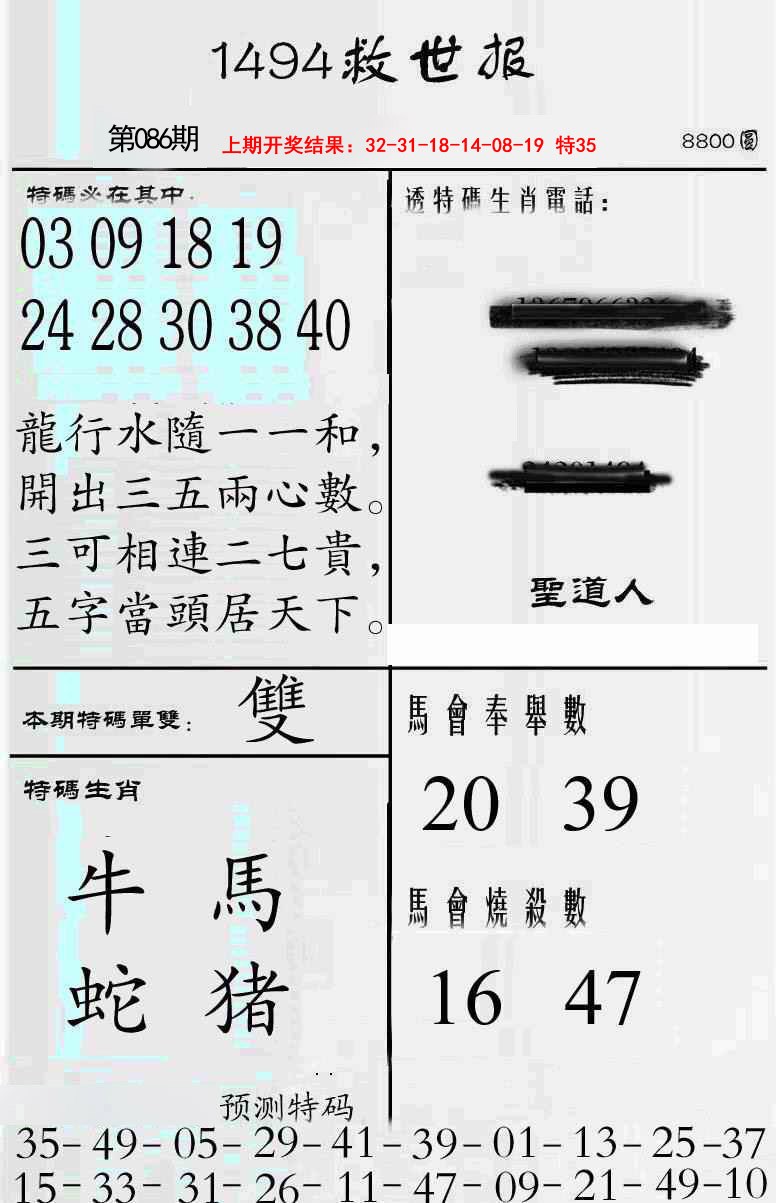 1494救世报
第086期 上期开奖结果：32-31-18-14-08-19 特35 8800圓
特碼必在其中.
03 09 18 19
24 28 30 38 40
龍行水隨一一和，
開出三五兩心數。
三可相連二七貴，
五字當頭居天下。
透特碼生肖電話：
聖道人
本期特碼單雙： 雙
特碼生肖
牛 馬
蛇 猪
馬會奉舉數
20 39
馬會燒殺數
16 47
预测特码
35-49-05-29-41-39-01-13-25-37
15-33-31-26-11-47-09-21-49-10